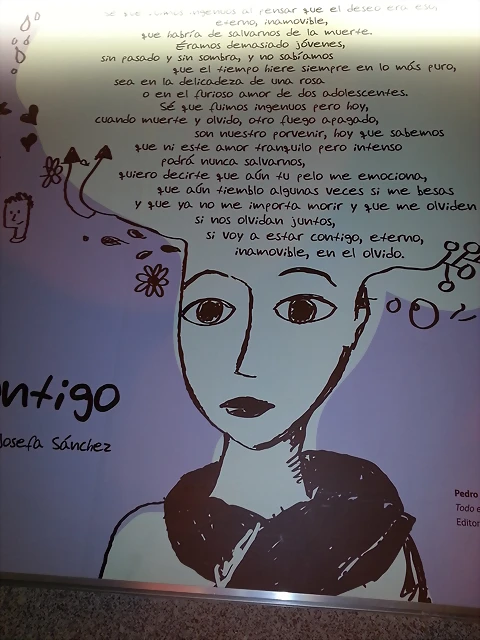 Sé que fuimos ingenuos al pensar que el deseo era
eterno, inamovible,
que habría de salvarnos de la muerte.
Éramos demasiado jóvenes,
sin pasado y sin sombra, y no sabíamos
que el tiempo hiere siempre en lo más puro,
sea en la delicadeza de una rosa
o en el furioso amor de dos adolescentes.
Sé que fuimos ingenuos pero hoy,
cuando muerte y olvido, otro fuego apagado,
son nuestro porvenir, hoy que sabemos
que ni este amor tranquilo pero intenso
podrá nunca salvarnos,
quiero decirte que aún tu pelo me emociona,
que aún tiemblo algunas veces si me besas
y que ya no me importa morir y que me olviden
si nos olvidan juntos,
si voy a estar contigo, eterno,
inamovible, en el olvido.
ontigo
Josefa Sánchez
Pedro
Todo e
Editor